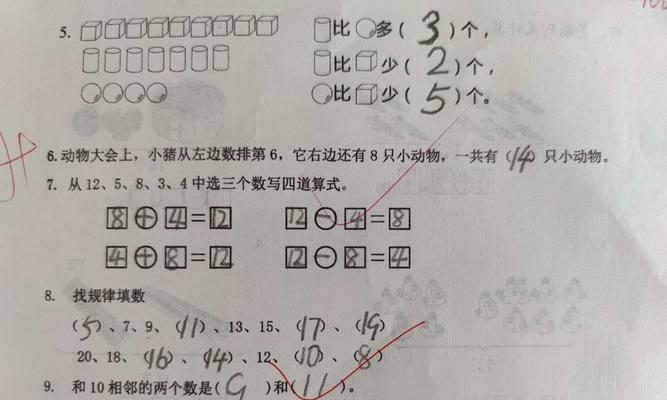 5. 比 多( 3 )个,
比 少( 2 )个,
比 少( 5 )个。
6. 动物大会上,小猪从左边数排第 6,它右边还有 8 只小动物,一共有(14)只小动物。
7. 从 12、5、8、3、4 中选三个数写四道算式。
8 + 4 = 12 12 - 4 = 8
4 + 8 = 12 12 - 8 = 4
8. 找规律填数
(5)、7、9、(11)、13、15、(17)、(19)
20、18、(16)、(14)、12、(10)、(8)
9. 和 10 相邻的两个数是( 9 )和( 11 )。